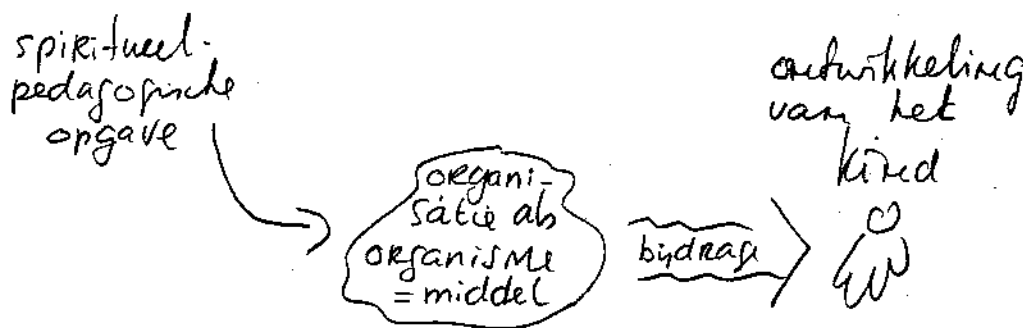 spiritueel-
pedagogische
opgave
organi-
satie als
organisme
= middel
bijdrage
ontwikkeling
van het
kind